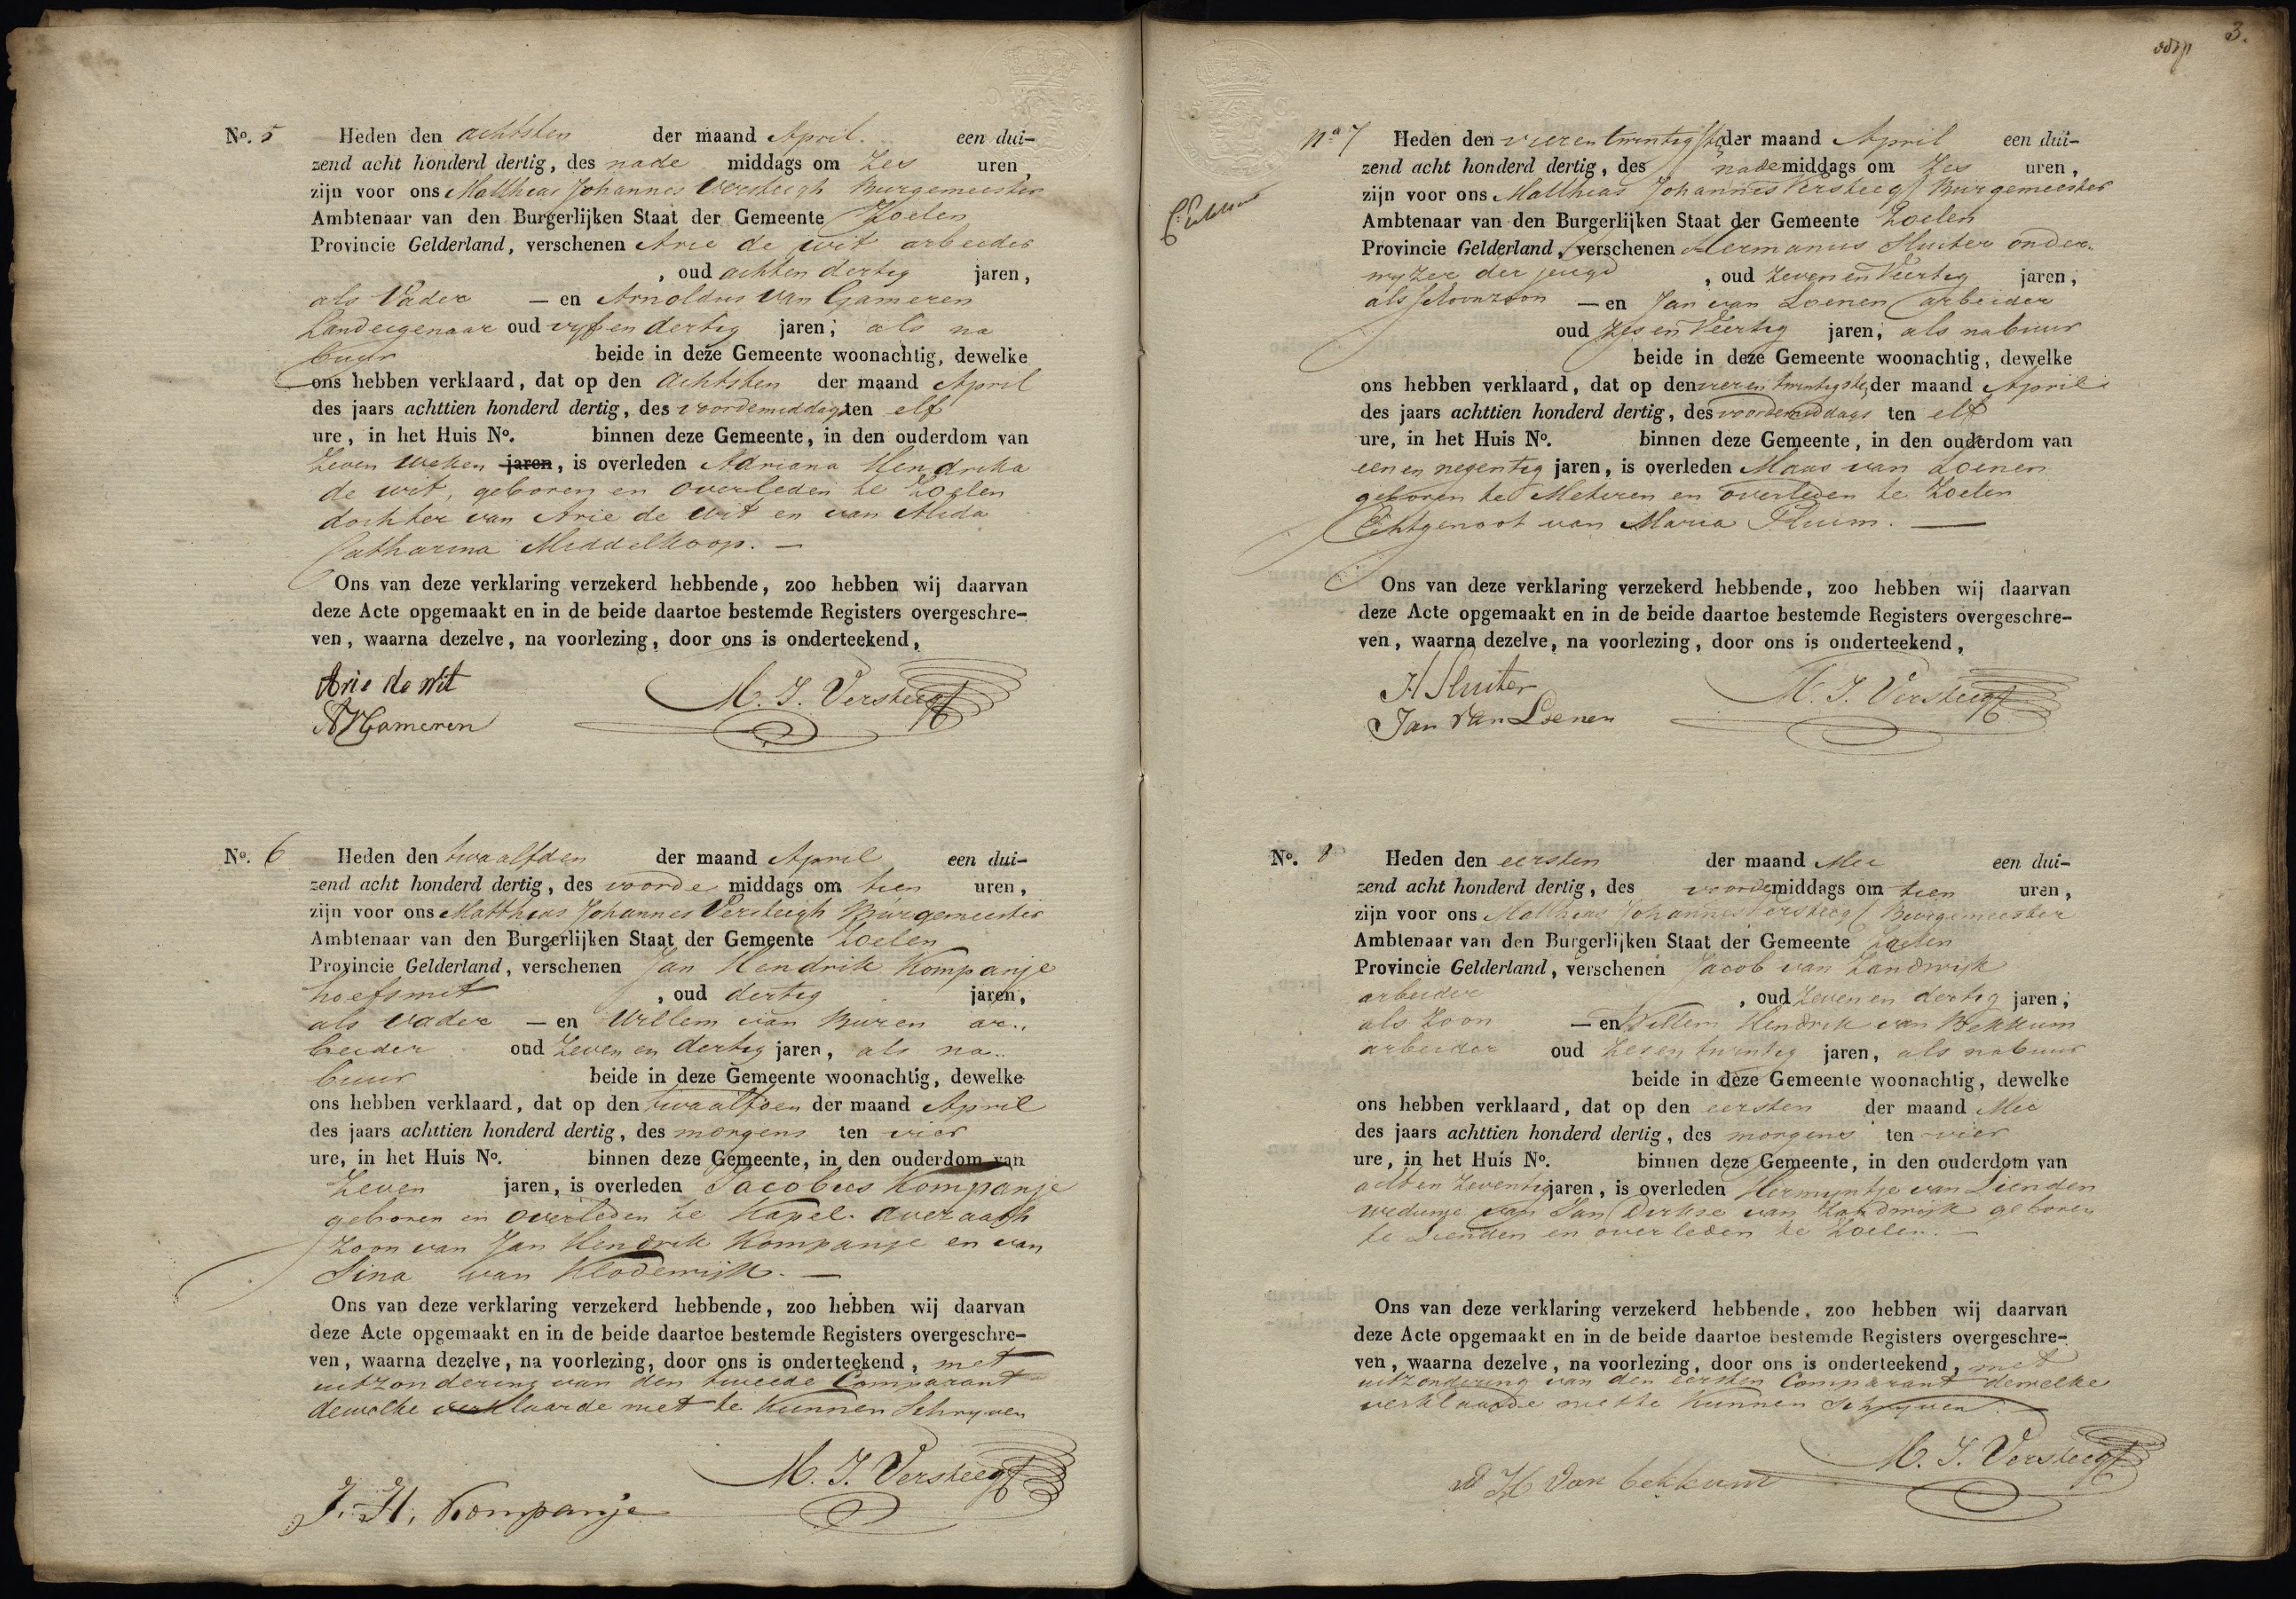 No. 5 Heden den achtsten der maand April een dui-
zend acht honderd dertig, des nade middags om Zes uren,
zijn voor ons Matthias Johannes Versteegh Burgemeester
Ambtenaar van den Burgerlijken Staat der Gemeente Zoelen
Provincie Gelderland, verschenen Arie de wit arbeider
, oud achten dertig jaren,
als Vader — en Arnoldus van Gameren
Landeigenaar oud vyf en dertig jaren, als na
buur beide in deze Gemeente woonachtig, dewelke
ons hebben verklaard, dat op den achtsten der maand April
des jaars achttien honderd dertig, des voordemiddags ten elf
ure, in het Huis No. binnen deze Gemeente, in den ouderdom van
Zeven weken jaren, is overleden Adriana Hendrika
de wit, geboren en overleden te Zoelen
dochter van Arie de wit en van Alida
Catharina Middelkoop. —
Ons van deze verklaring verzekerd hebbende, zoo hebben wij daarvan
deze Acte opgemaakt en in de beide daartoe bestemde Registers overgeschre-
ven, waarna dezelve, na voorlezing, door ons is onderteekend,
Arie de wit
M. J. Versteegh
AVGameren
No. 6 Heden den twaalfden der maand April een dui-
zend acht honderd dertig, des voorde middags om tien uren,
zijn voor ons Matthias Johannes Versteegh Burgemeester
Ambtenaar van den Burgerlijken Staat der Gemeente Zoelen
Provincie Gelderland, verschenen Jan Hendrik Kompanje
hoefsmit , oud dertig jaren,
als vader — en Willem van Buren ar..
beider oud Zeven en dertig jaren, als na..
buur beide in deze Gemeente woonachtig, dewelke
ons hebben verklaard, dat op den twaalfden der maand April
des jaars achttien honderd dertig, des morgens ten vier
ure, in het Huis No. binnen deze Gemeente, in den ouderdom van
Zeven jaren, is overleden Jacobus Kompanje
geboren en overleden te Kapel. averaath
Zoon van Jan Hendrik Kompanje en van
Sina van Klodewijk. —
Ons van deze verklaring verzekerd hebbende, zoo hebben wij daarvan
deze Acte opgemaakt en in de beide daartoe bestemde Registers overgeschre-
ven, waarna dezelve, na voorlezing, door ons is onderteekend, met
uitzondering van den tweede Comparant
dewelke verklaarde niet te kunnen Schryven
M. J. Versteegh
J. H. Kompanje
3.
No 7 Heden den vieren twintigste der maand April een dui-
zend acht honderd dertig, des nade middags om Zes uren,
zijn voor ons Matthias Johannes Versteegh Burgemeester
Ambtenaar van den Burgerlijken Staat der Gemeente Zoelen
Provincie Gelderland, verschenen Hermanus Sluiter onder..
wyzer der jeugd , oud Zeven en Veertig jaren,
als schoonzoon — en Jan van Loenen arbeider
oud Zes en Veertig jaren, als nabuur
beide in deze Gemeente woonachtig, dewelke
ons hebben verklaard, dat op den vieren twintigste, der maand April
des jaars achttien honderd dertig, des voordemiddags ten elf
ure, in het Huis No. binnen deze Gemeente, in den ouderdom van
een en negentig jaren, is overleden Maas van Loenen
geboren te Meteren en overleden te Zoelen
Echtgenoot van Maria Pluim. —
Ons van deze verklaring verzekerd hebbende, zoo hebben wij daarvan
deze Acte opgemaakt en in de beide daartoe bestemde Registers overgeschre-
ven, waarna dezelve, na voorlezing, door ons is onderteekend,
H Sluiter
M. J. Versteegh
Jan van Loenen
No. 8 Heden den eersten der maand Mei een dui-
zend acht honderd dertig, des voorde middags om tien uren,
zijn voor ons Matthias Johannes Versteegh Burgemeester
Ambtenaar van den Burgerlijken Staat der Gemeente Zoelen
Provincie Gelderland, verschenen Jacob van Zandwijk
arbeider , oud Zeven en dertig jaren,
als Zoon — en Willem Hendrik van Bekkum
arbeider oud Zes en twintig jaren, als nabuur
beide in deze Gemeente woonachtig, dewelke
ons hebben verklaard, dat op den eersten der maand Mei
des jaars achttien honderd dertig, des morgens ten vier
ure, in het Huis No. binnen deze Gemeente, in den ouderdom van
acht en Zeventig jaren, is overleden Hermyntje van Lienden
weduwe van Jan Dirkse van Zandwijk geboren
te Lienden en overleden te Zoelen. —
Ons van deze verklaring verzekerd hebbende, zoo hebben wij daarvan
deze Acte opgemaakt en in de beide daartoe bestemde Registers overgeschre-
ven, waarna dezelve, na voorlezing, door ons is onderteekend, met
uitzondering van den eersten Comparant dewelke
verklaarde niet te kunnen Schryven. —
M. J. Versteegh
W H van bekkum